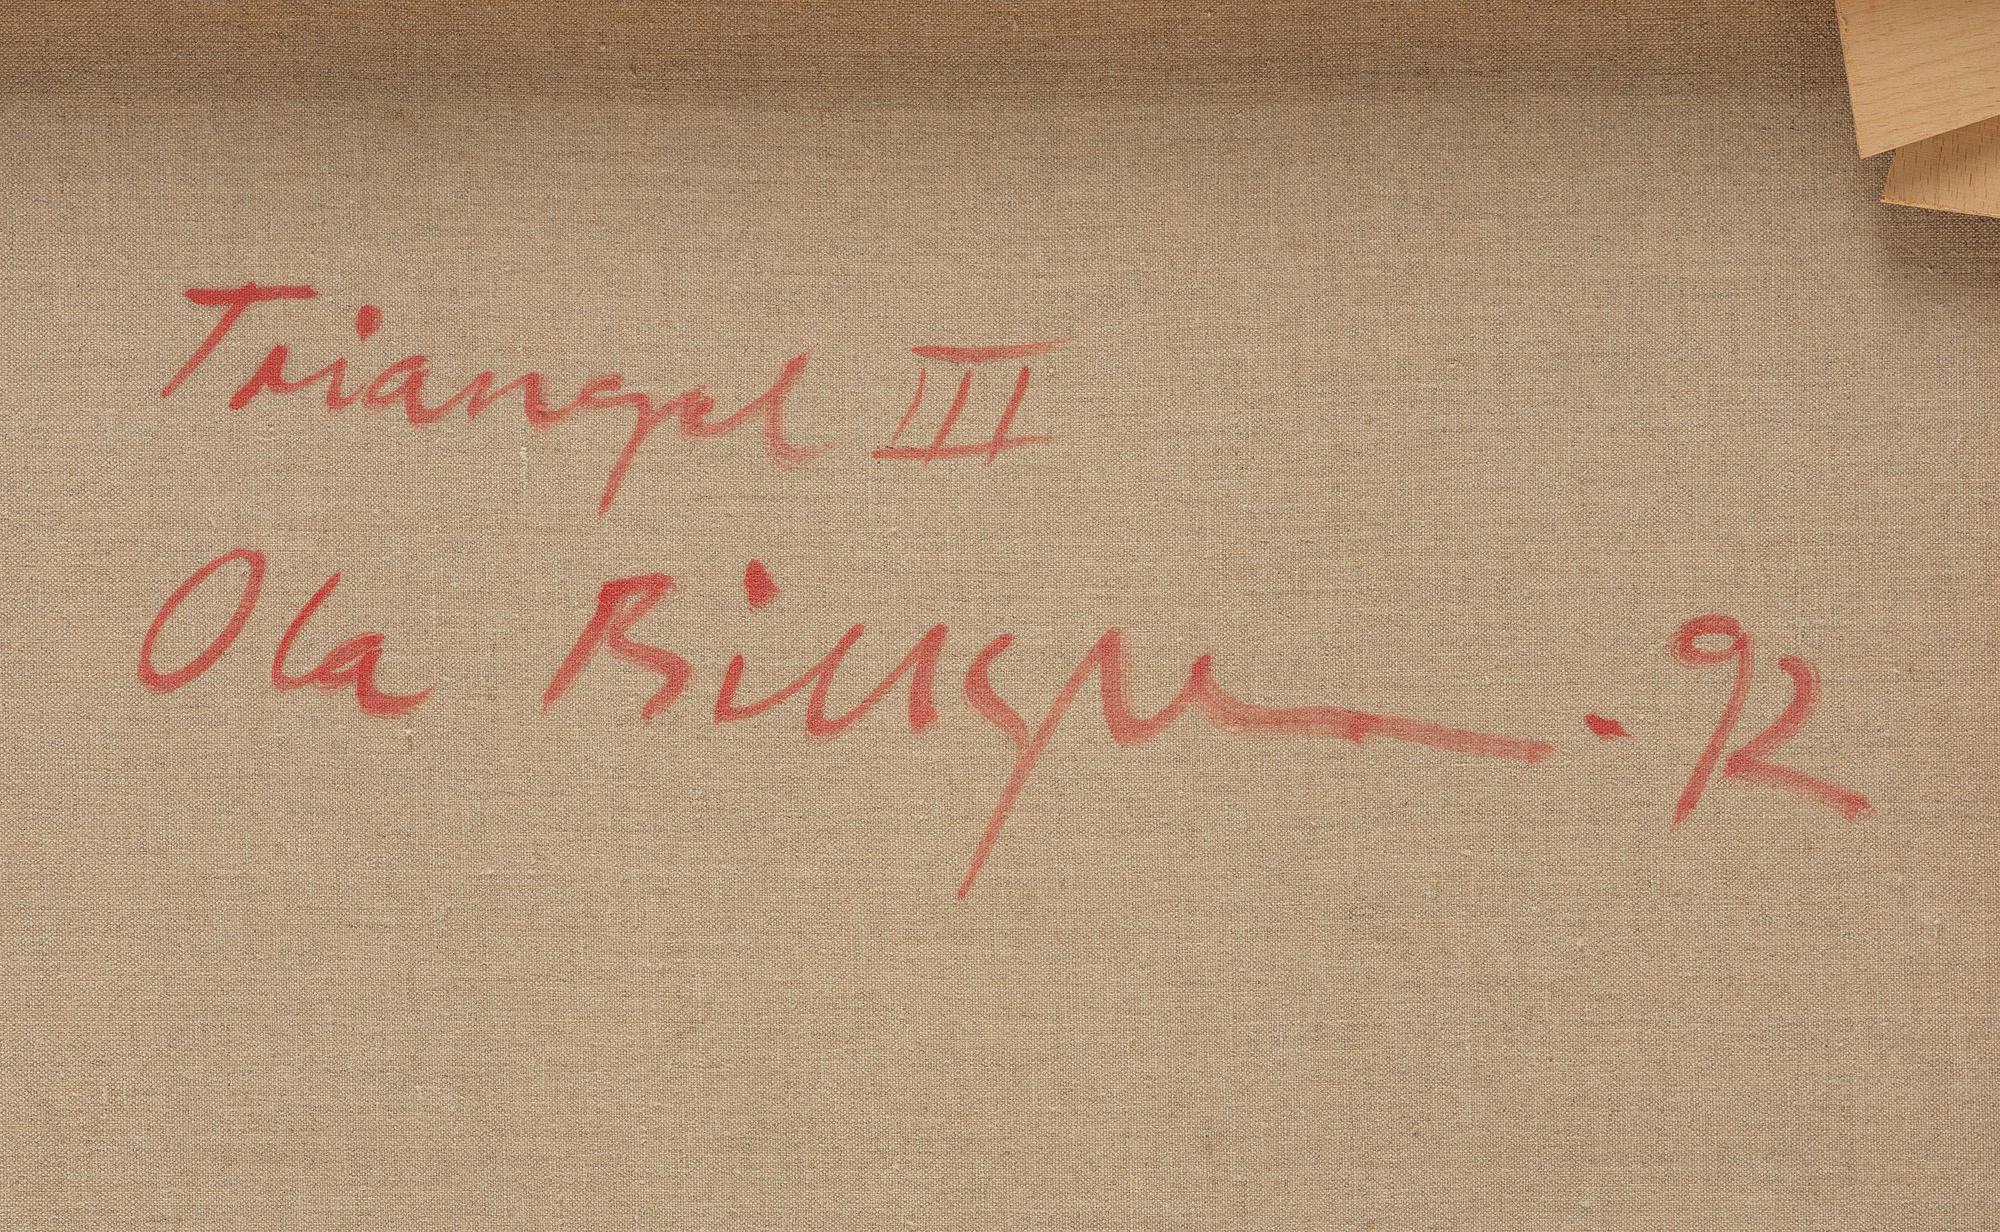 Triangel III
Ola Billgren -92